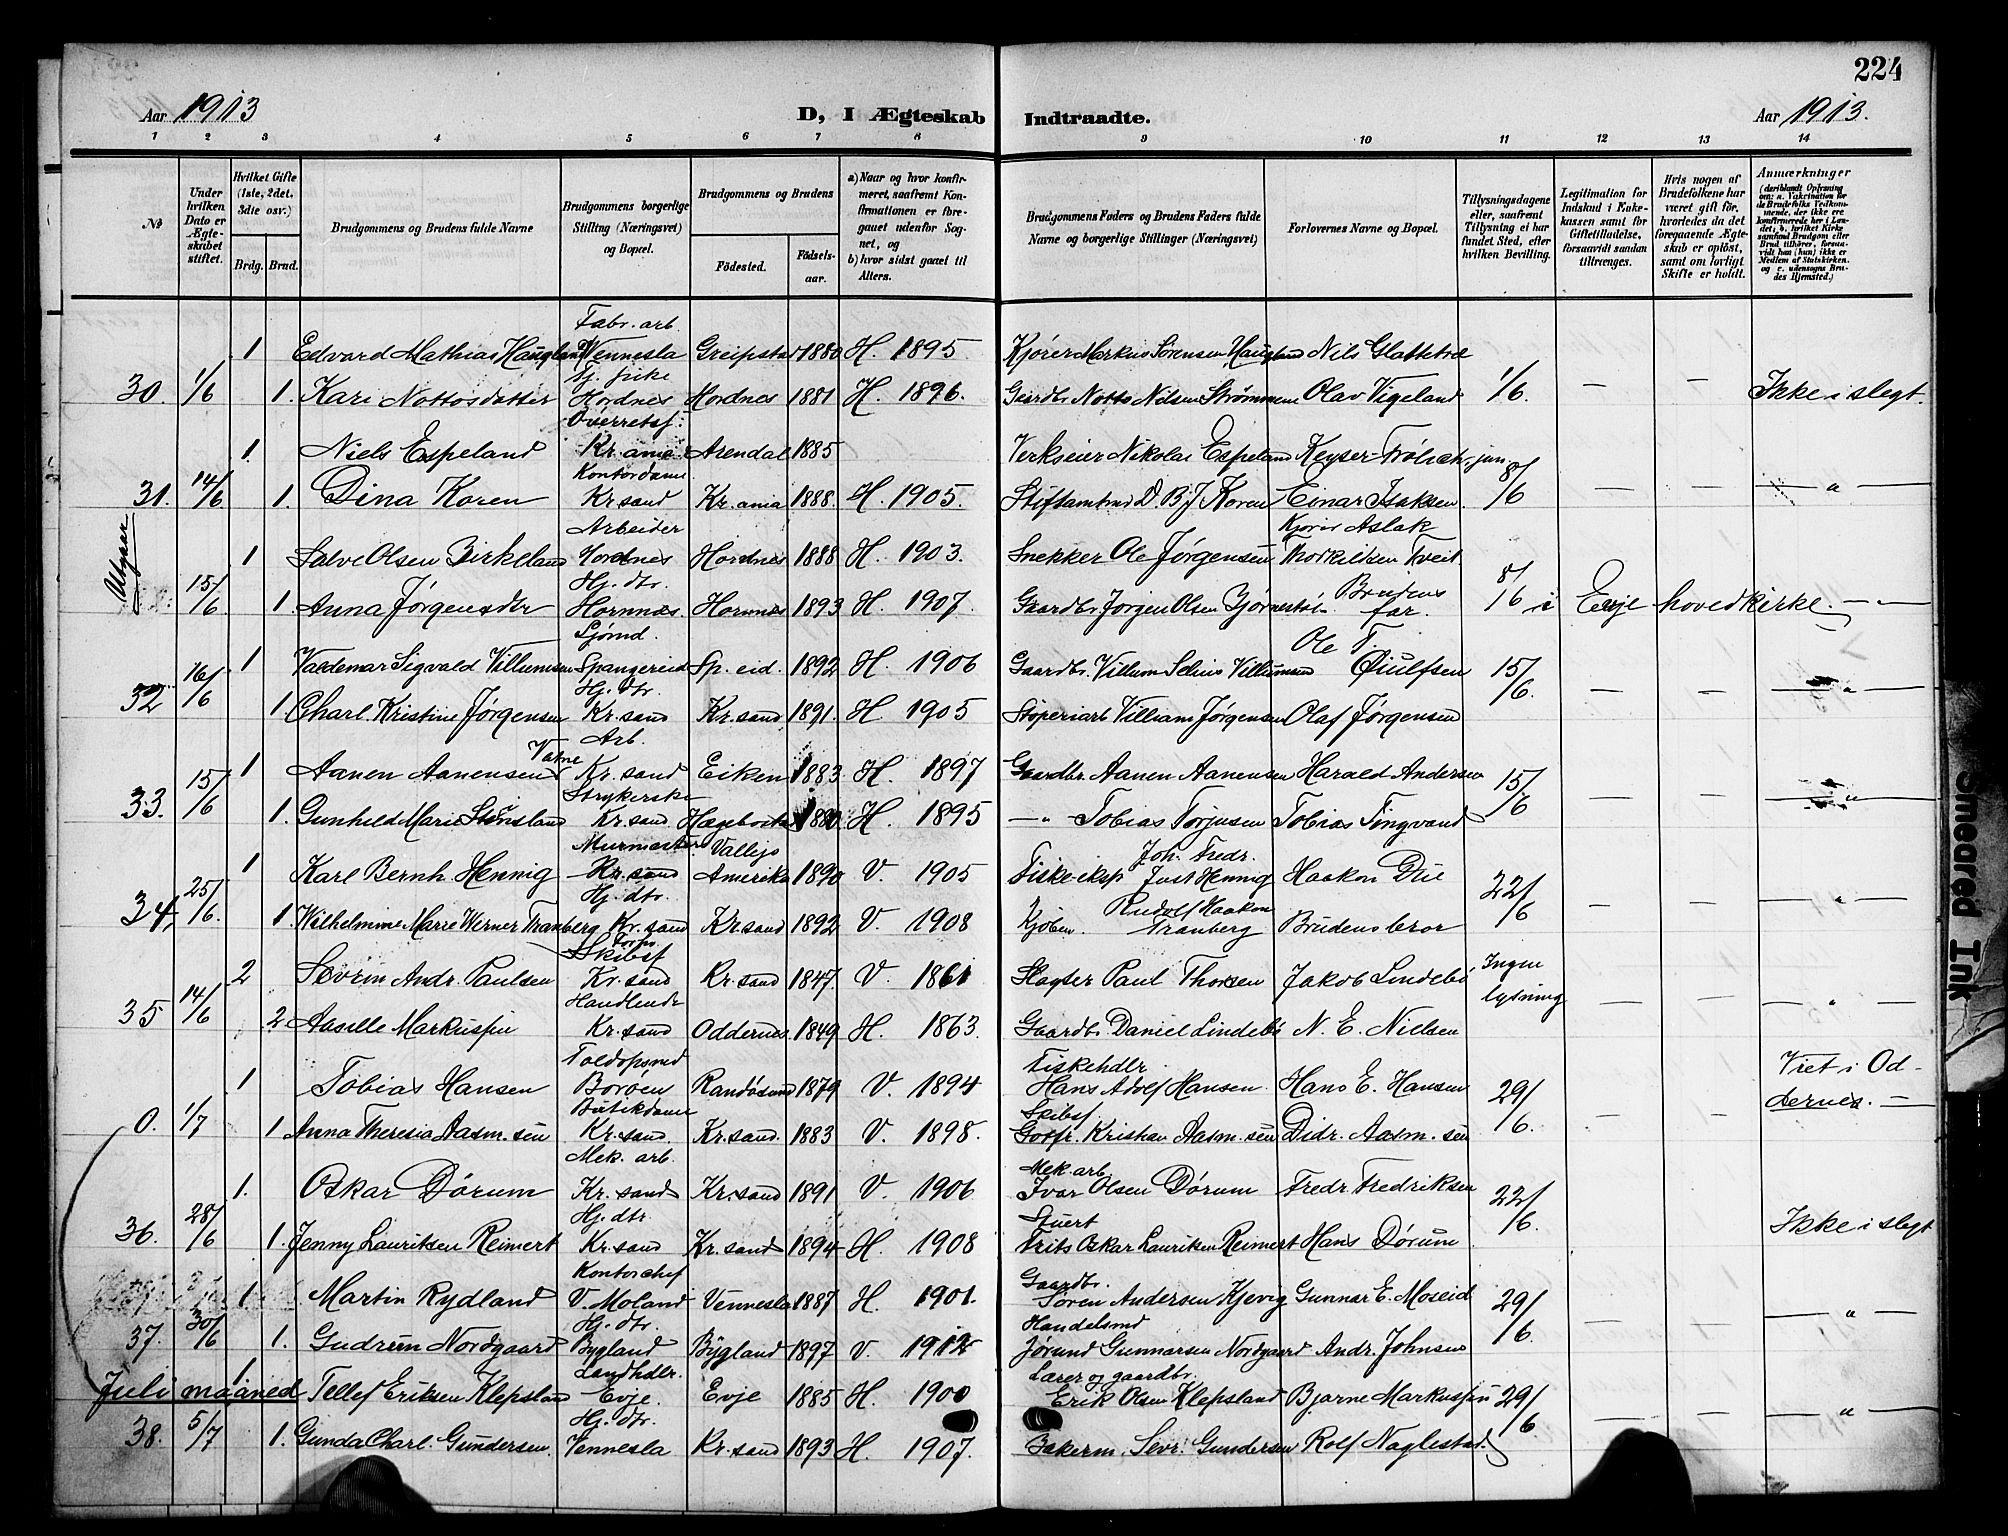 224
Aar 1913 D, I Ægteskab Indtraadte. Aar 1913.
1 2 3 4 5 6 7 8 9 10 11 12 13 14
No
Under hvilken Dato er Ægteskabet stiftet.
Hvilket Gifte (1ste, 2det, 3die osv.)
Brdg. Brud.
Brudgommens og Brudens fulde Navne
Brudgommens borgerlige Stilling (Næringsvei) og Bopæl.
Brudgommens og Brudens
Födested. Födselsaar.
a) Naar og hvor konfirmeret, saafremt Konfirmationen er foregaaet udenfor Sognet, og
b) hvor sidst gaaet til Alters.
Brudgommens Faders og Brudens Faders fulde Navne og borgerlige Stillinger (Næringsvei)
Forlovernes Navne og Bopæl.
Tillysningsdagene eller, saafremt Tillysning ei har fundet Sted, efter hvilken Bevilling.
Legitimation for Indskud i Enkekassen samt for Giftetilladelse, forsaavidt saadan tiltrænges.
Hvis nogen af Brudefolkene har været gift för, hvorledes da det foregaaende Ægteskab er oplöst, samt om lovligt Skifte er holdt.
Anmærkninger (deriblandt Oplysning om: a. Vakcination for de Brudefolks Vedkommende, der ikke ere konfirmerede her i Landet; b. hvilket Kirkesamfund Brudgom eller Brud tilhörer, forsaavidt han (hun) ikke er Medlem af Statskirken. og c. udensogns Brudes Hjemsted.)
Fabr. arb.
1 Edvard Mathias Haugland Vennesla Greipstad 1880 H. 1895 Kjører Markus Sørensen Haugland Nils Glattetræ
Tj. pike
30 1/6 1. Kari Nottosdatter Hordnes Hordnes 1881 H. 1896. Gaardbr. Notto Nilsen Strømmene Olav Vigeland 1/6. — — Ikke i slegt.
Overretssf.
1. Niels Espeland Kr. ania Arendal 1885 Verkseier Nikolai Espeland Keyser-Frølich jun
Kontordame
31. 14/6 1. Dina Koren Kr. sand Kr. ania 1888. H. 1905. Stiftsamtmd D. B. J. Koren Einar Isaksen. 8/6 — — — " —
Arbeider Kjører Aslak
1 Salve Olsen Birkeland Hordnes Hordnes 1888 H. 1903. Snekker Ole Jørgensen Thorkildsen Tveit.
Hj. dtr.
15/6 1. Anna Jørgensdtr Hornnes. Hornnes 1893 H. 1907. Gaardbr. Jørgen Olsen Bjørnestøl. Brudens far. 8/6 i Evje hovedkirke. — " —
Sjømd. Ole T.
1 Valdemar Sigvald Villumsen Spangereid Sp. eid. 1892 H. 1906 Gaardbr. Villum Selius Villumsen Øiulfsen
Hj. dtr.
32 16/6 1 Charl. Kristine Jørgensen Kr. sand Kr. sand 1891. H 1905 Støperiarb Villiam Jørgensen Olaf Jørgensen 15/6. — — — " —
Vatne Arb.
1 Aanen Aanensen Kr. sand Eiken 1883. H. 1897 Gaardbr. Aanen Aanensen Harald Andersen
Strykerske
33. 15/6 1. Gunhild Marie Stensland Kr. sand. Hægebostad 1880 H. 1895 — " Tobias Torjusen Tobias Tingvand 15/6 — — — " —
Murmester Vallejo Joh. Fredr.
1 Karl Bernh. Hennig Kr. sand Amerika 1890 V. 1905 Fiske-eksp. Just Hennig Haakon Due
Hj. dtr. Rudolf Haakon
34, 25/6. 1. Wilhelmine Marie Werner Tranberg Kr. sand Kr. sand 1892 V. 1908 Kjøbm. Tranberg Brudens bror 22/6 — — "
Skibsf
2 Severin Andr. Paulsen Kr. sand Kr. sand 1847. V. 1861 Slagter Paul Thorsen Jakob Lindebø Ingen lysning
Handlende
35 14/6 2 Aaselle Markussen Kr. sand Oddernes 1849 H. 1863. Gaardbr. Daniel Lindebø N. E. Nielsen — — — " —
Toldopsmd Fiskehdlr
1 Tobias Hansen Borøen Randøsund 1879 V. 1894 Hans Adolf Hansen Hans E. Hansen
Butikdame Skibsf.
0. 1/7 1 Anna Theresia Aasm. sen Kr. sand. Kr. sand. 1883 V. 1898. Gotfr. Kristian Aasm. sen Didr. Aasm. sen 29/6. — — Viet i Oddernes. —
Mek. arb. Mek. arb.
1. Oskar Dørum Kr. sand Kr. sand 1891 V. 1906 Ivar Olsen Dørum Fredr. Fredriksen
Hj. dtr Stuert
36. 28/6 1. Jenny Lauritsen Reimert Kr. sand Kr. sand 1894 H. 1908 Frits Oskar Lauritsen Reimert Hans Dørum 22/6. Ikke i slegt
Kontorchef Gaardbr.
1. Martin Rydland V. Moland Vennesla 1887 H. 1901. Søren Andersen Kjevig Gunnar E. Moseid
Hj. dtr. Handelsmd
37. 30/6 1. Gudrun Nordgaard Bygland Bygland 1897 V. 1912 Jørund Gunnarsen Nordgaard Andr. Johnsen 29/6. — " —
Juli maaned
Landhdlr. Lærer og gaardbr.
1 Tellef Eriksen Klepsland Evje. Evje 1885 H. 1900 Erik Olsen Klepsland Bjarne Markussen
Hj. dtr.
38. 5/7 1. Gunda Charl. Gundersen. Vennesla Kr. sand 1893 H 1907. Bakerm. Sevr. Gundersen Rolf Naglestad. 29/6 — — — " —
Smeared Ink